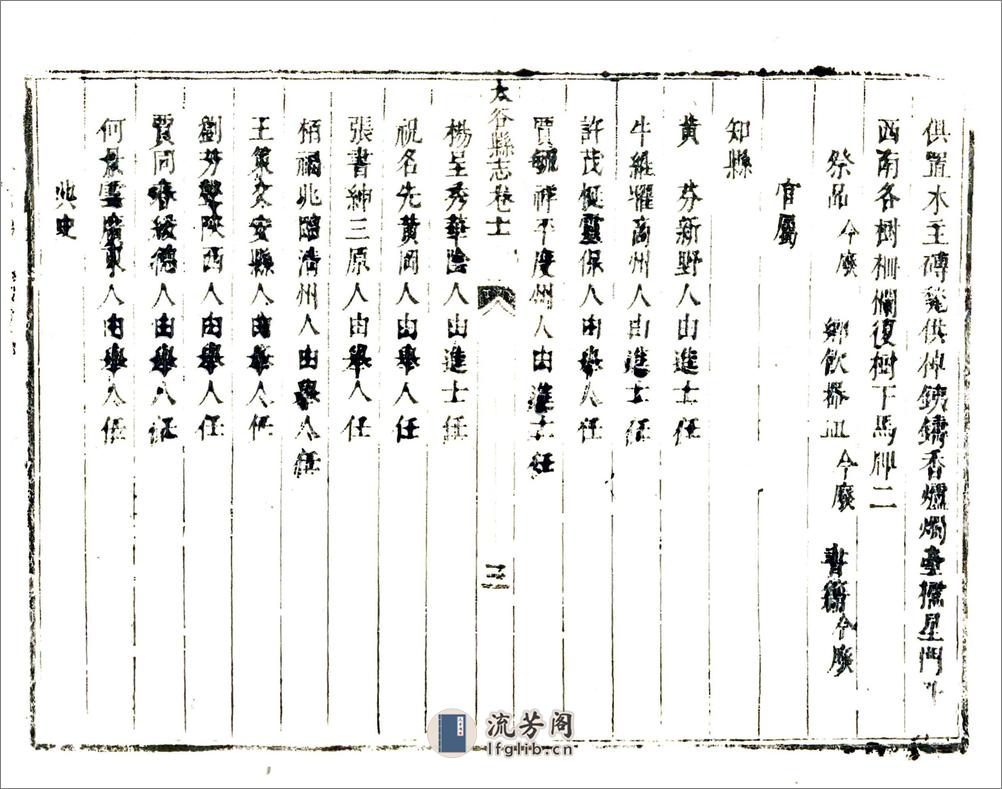 俱置木主磚龕供棹銕鑄香爐燭臺櫺星門外
西南各樹柵欄復樹下馬牌二
祭吊今廢 鄉飲器皿今廢 書籍今廢
官屬
知縣
黃 芬新野人由進士任
牛維㬬商州人由進士任
許茂 靈保人由舉人任
賈 祥平度州人由進士任
太谷縣志卷十 三
楊呈秀華陰人由進士任
祝名先黃岡人由舉人任
張書紳三原人由舉人任
栢 兆臨清州人由舉人任
王 文安縣人由舉人任
劉芬 陝西人由舉人任
賈同春綏德人由舉人任
何 雲廣東人由舉人任
典史
流芳阁
lfglib.cn